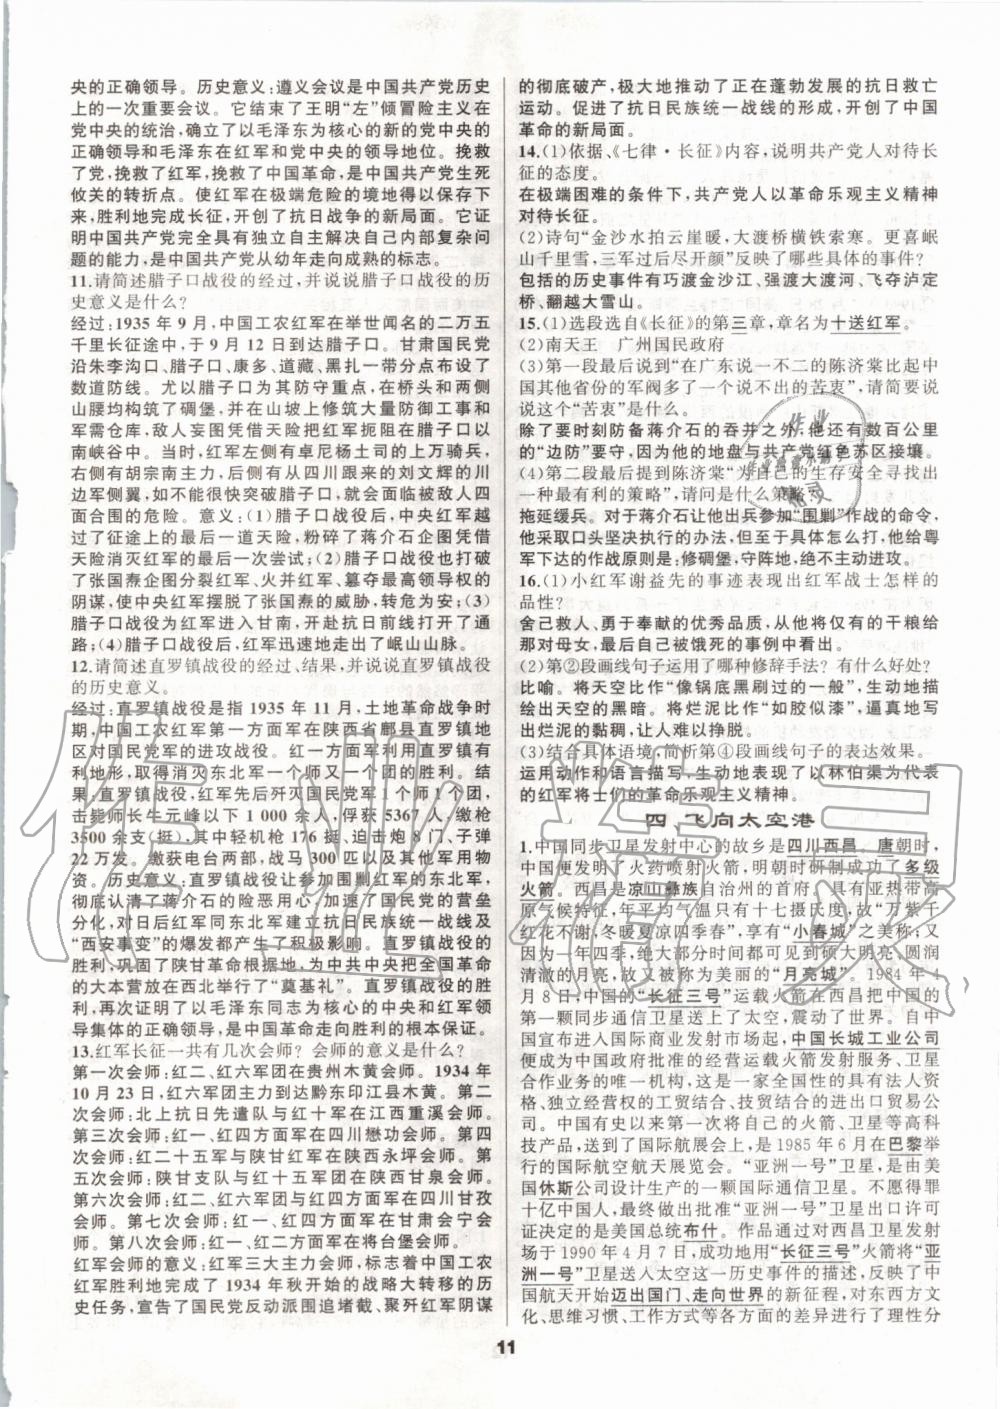 央的正确领导。历史意义:遵义会议是中国共产党历史
上的一次重要会议。它结束了王明“左”倾冒险主义在
党中央的统治,确立了以毛泽东为核心的新的党中央的
正确领导和毛泽东在红军和党中央的领导地位。挽救
了党,挽救了红军,挽救了中国革命,是中国共产党生死
攸关的转折点。使红军在极端危险的境地得以保存下
来,胜利地完成长征,开创了抗日战争的新局面。它证
明中国共产党完全具有独立自主解决自己内部复杂问
题的能力,是中国共产党从幼年走向成熟的标志。
11.请简述腊子口战役的经过,并说说腊子口战役的历
史意义是什么?
经过:1935年9月,中国工农红军在举世闻名的二万五
千里长征途中,于9月12日到达腊子口。甘肃国民党
沿朱李沟口、腊子口、康多、道藏、黑扎一带分点布设了
数道防线。尤以腊子口为防守重点,在桥头和两侧
山腰均构筑了碉堡,并在山坡上修筑大量防御工事和
军需仓库,敌人妄图凭借天险阻挡红军北上腊子口以
南峡谷中。当时,红军左侧有卓尼杨土司的上万骑兵,
右侧有胡宗南主力,后又有从四川来的刘文辉的川
边军侧翼,如不能很快突破腊子口,就会面临被敌人四
面合围的危险。意义:(1)腊子口战役后,中央红军越
过了征途上的一大天险,粉碎了蒋介石企图凭借天
险消灭红军的最后一次尝试;(2)腊子口战役也打破
了张国焘企图分裂红军、火并红军、篡夺最高领导权的
阴谋,使中央红军摆脱了张国焘的威胁,转危为安;(3)
腊子口战役后,红军进入甘南,开赴抗日前线打开了通
路;(4)腊子口战役后,红军迅速地走出了岷山山脉。
12.请简述直罗镇战役的经过、结果,并说说直罗镇战役
的历史意义。
经过:直罗镇战役是指1935年11月,土地革命战争时
期,中国工农红军第一方面军在陕西省鄜县直罗镇地
区对国民党军的进攻战役。红一方面军利用直罗镇有
利地形,取得消灭东北军一个师又一个团的胜利。结
果:直罗镇战役,红军先后歼灭国民党军1个师1个团,
击毙师长牛元峰以下1 000余人,俘获5367人,缴枪
3500余支(挺),其中轻机枪176挺,迫击炮8门、子弹
22万发。缴获电台两部,战马300匹以及其他军用物
资。历史意义:直罗镇战役让参加围剿红军的东北军,
彻底认清了蒋介石的险恶用心,加速了国民党的营垒
分化,对日后红军同东北军建立抗日民族统一战线及
“西安事变”的爆发都产生了积极影响。直罗镇战役的
胜利,巩固了陕甘革命根据地,为中共中央把全国革命
的大本营放在西北举行了“奠基礼”。直罗镇战役的胜
利,再次证明了以毛泽东同志为核心的中央和红军领
导集体的正确领导,是中国革命走向胜利的根本保证。
13.红军长征一共有几次会师?会师的意义是什么?
第一次会师:红二、红六军团在贵州木黄会师。1934年
10月23日,红六军团主力到达黔东印江县木黄。第二
次会师:北上抗日先遣队与红十军在江西重溪会师。
第三次会师:红一、红四方面军在四川懋功会师。第四
次会师:红二十五军与红军在陕西永坪会师。第
五次会师:陕甘支队与红十五军团在陕西甘泉会师。
第六次会师:红二、红六军团与红四方面军在四川甘孜
会师。第七次会师:红一、红四方面军在甘肃会宁会
师。第八次会师:红一、红二方面军在将台堡会师。
红军会师的意义:红军三大主力会师,标志着中国工农
红军胜利地完成了1934年秋开始的战略大转移的历
史任务,宣告了国民党反动派围追堵截、聚歼红军阴谋
的彻底破产,极大地推动了正在蓬勃发展的抗日救亡
运动。促进了抗日民族统一战线的形成,开创了中国
革命的新局面。
14.(1)依据、《七律·长征》内容,说明共产党人对待长
征的态度。
在极端困难的条件下,共产党人以革命乐观主义精神
对待长征。
(2)诗句“金沙水拍云崖暖,大渡桥横铁索寒。更喜岷
山千里雪,三军过后尽开颜”反映了哪些具体的事件?
包括的历史事件有巧渡金沙江、强渡大渡河、飞夺泸定
桥、翻越大雪山。
15.(1)选段选自《长征》的第三章,章名为十送红军。
(2)南天王　广州国民政府
(3)第一段最后说到“在广东说一不二的陈济棠比起
中国其他省份的军阀多了一个说不出的苦衷”,请简要说
说这个“苦衷”是什么。
除了要时刻防备蒋介石的吞并之外,他还有数百公里
的“边防”要守,因为他的地盘与共产党红色苏区接壤。
(4)第二段最后提到陈济棠“为自己的生存安全寻找出
一种最有利的策略”,请问是什么策略?
拖延缓兵。对于蒋介石让他出兵参加“围剿”作战的命令,
他采取口头坚决执行的办法,但实际上怎么打,他给粤
军下达的作战原则是:修碉堡,守阵地,绝不主动进攻。
16.(1)小红军谢益先的事迹表现出红军战士怎样的
品性?
舍己救人、勇于奉献的优秀品质,从他将仅有的干粮给
那对母女,最后自己被饿死的事例中看出。
(2)第②段画线句子运用了哪种修辞手法?有什么好处?
比喻。将天空比作“像锅底黑刷过的一般”,生动地描
绘出天空的黑暗。将烂泥比作“如胶似漆”,逼真地写
出烂泥的黏稠,让人难以挣脱。
(3)结合具体语境,简析第④段画线句子的表达效果。
运用动作和语言描写,生动地表现了以林伯渠为代表
的红军将士们的革命乐观主义精神。
四　飞向太空港
1.中国同步卫星发射中心的故乡是四川西昌。唐朝时,
中国便发明了火药喷射火箭,明朝时研制成功了多级
火箭。西昌是凉山彝族自治州的首府。具有亚热带高
原气候特征,年平均气温只有十七摄氏度,故“万紫千
红花不谢,冬暖夏凉四季春”,享有“小春城”之美称;又
因为一年四季绝大部分时间都可见到硕大明亮、圆润
清澈的月亮,故又被为美丽的“月亮城”。1984年4
月8日,中国的“长征三号”运载火箭在西昌把中国的
第一颗同步通信卫星送上了太空,震动了世界。自中
国宣布进入国际商业发射市场后,中国长城工业公司
便成为中国政府批准的经营运载火箭发射服务、卫星
合作业务的唯一机构,这是一家全国性的具有法人资
格、独立经营权的工贸结合、技贸结合的进出口贸易公
司。中国有史以来第一次将火箭、卫星等高科
技产品,送到了国际航展会上,是1985年6月在巴黎举
行的国际航空航天展览会。“亚洲一号”卫星,是由美
国休斯公司设计生产的一颗国际通信卫星。不愿得罪
十亿中国人,最终做出批准“亚洲一号”卫星出口许可
证决定的是美国总统布什。作品通过对西昌卫星发射
场于1990年4月7日,成功地用“长征三号”火箭将“亚
洲一号”卫星送入太空这一历史事件的描述,反映了中
国航天开始迈出国门、走向世界的新征程,对东西方文
化、思维习惯、工作方式等各方面的差异进行了理性分
11